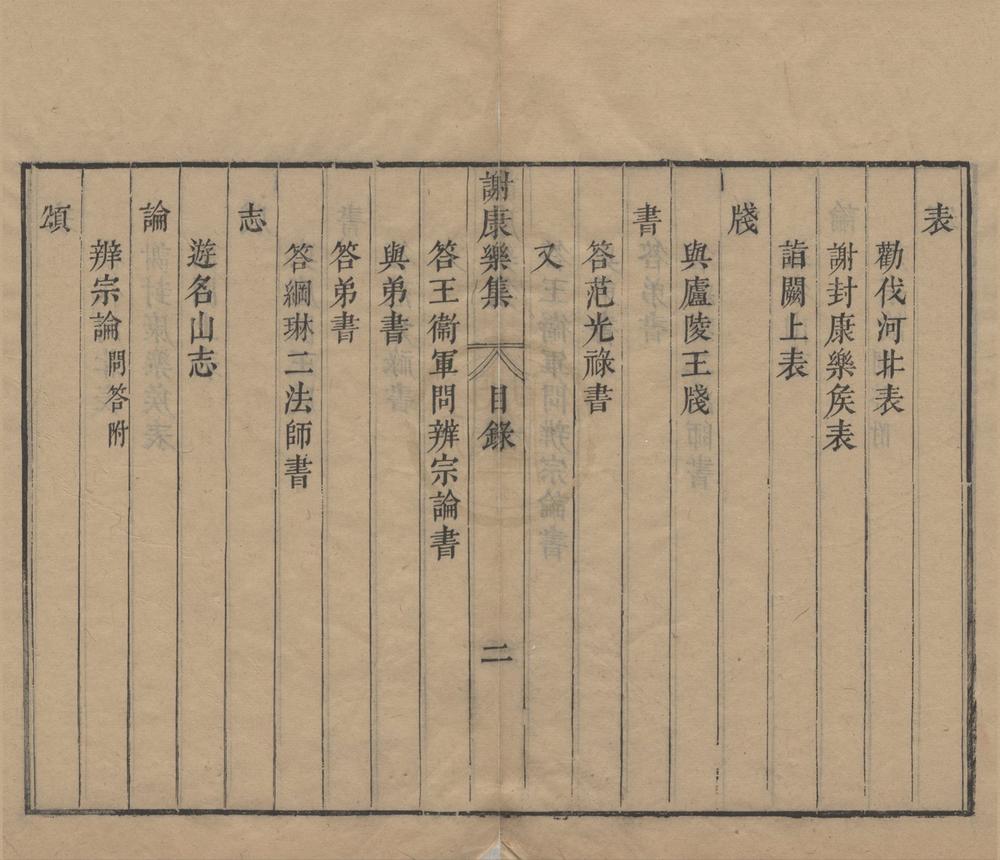 表
勸伐河北表
謝封康樂矦表
詣闕上表
牋
與廬陵王牋
書
答范光祿書
又
謝康樂集 目錄 二
答王衞軍問辨宗論書
與弟書
答弟書
答綱琳二法師書
志
遊名山志
論
辨宗論問答附
頌